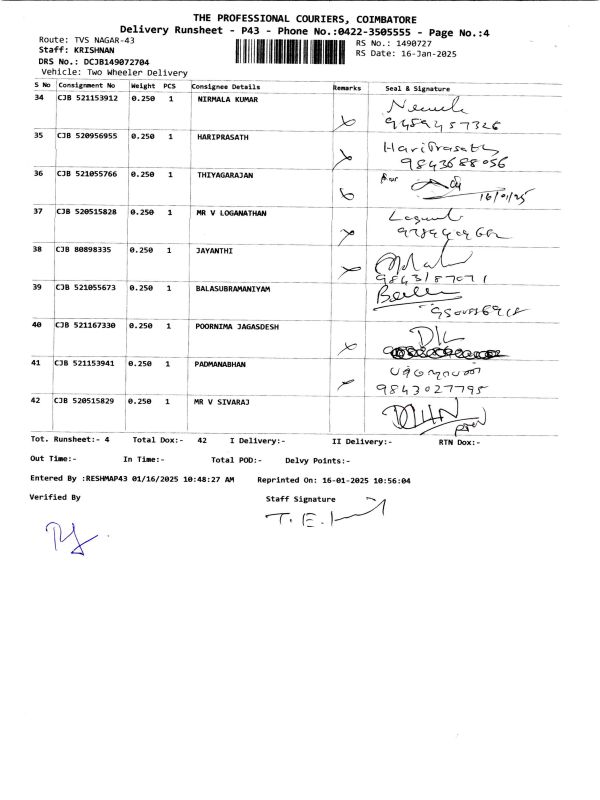 THE PROFESSIONAL COURIERS, COIMBATORE
Delivery Runsheet - P43 - Phone No.:0422-3505555 - Page No.:4
Route: TVS NAGAR-43
RS No.: 1490727
Staff: KRISHNAN
RS Date: 16-Jan-2025
DRS No.: DCJB149072704
Vehicle: Two Wheeler Delivery
S No Consignment No Weight PCS Consignee Details Remarks Seal & Signature
34 CJB 521153912 0.250 1 NIRMALA KUMAR
35 CJB 520956955 0.250 1 HARIPRASATH HariPrasath
9843688056
36 CJB 521055766 0.250 1 THIYAGARAJAN
16/01/25
37 CJB 520515828 0.250 1 MR V LOGANATHAN
38 CJB 80898335 0.250 1 JAYANTHI
9843187071
39 CJB 521055673 0.250 1 BALASUBRAMANIYAM
40 CJB 521167330 0.250 1 POORNIMA JAGASDESH
41 CJB 521153941 0.250 1 PADMANABHAN
9843027795
42 CJB 520515829 0.250 1 MR V SIVARAJ
Tot. Runsheet:- 4 Total Dox:- 42 I Delivery:- II Delivery:- RTN Dox:-
Out Time:- In Time:- Total POD:- Delvy Points:-
Entered By :RESHMAP43 01/16/2025 10:48:27 AM Reprinted On: 16-01-2025 10:56:04
Verified By Staff Signature